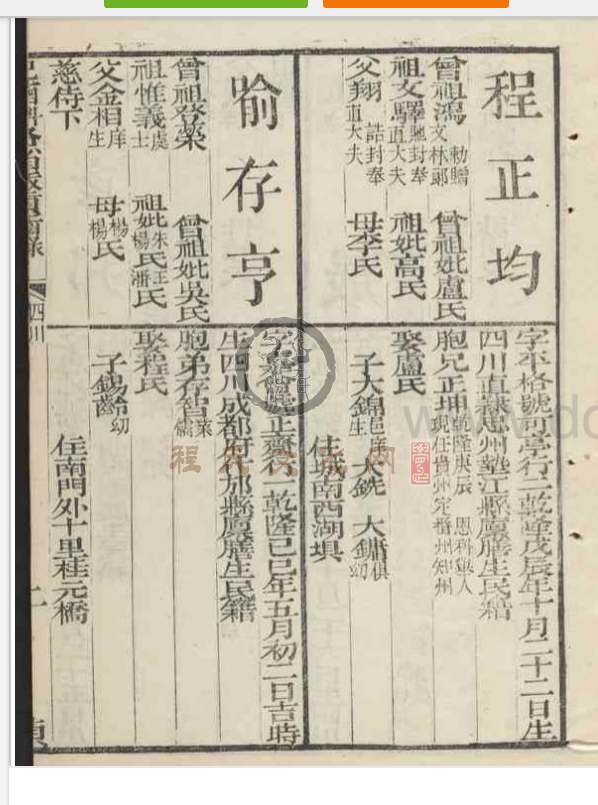 程正均
曾祖鴻文林郎 勅贈
祖文驛直大夫 貤封奉
父翔直大夫 誥封奉
曾祖妣盧氏
祖妣高氏
母李氏
字平格號可亭行二乾隆戊辰年十月二十二日生
四川直隸忠州墊江縣廩膳生民籍
胞兄正坤乾隆庚辰 恩科舉人 現任貴州定番州知州
娶盧氏
子大錦邑庠生 大銑 大鏞俱幼
住城南西湖埧
喻存亨
曾祖登藥
祖惟義虞士
父金相庠生
慈侍下
曾祖妣吳氏
祖妣朱楊氏王潘氏
母楊楊氏
號正齋行一乾隆己巳年五月初二日吉時
生四川成都府什邡縣廩膳生民籍
胞弟存智業儒
娶程氏
子錫齡幼
住南門外十里桂元橋
四川
二
貞